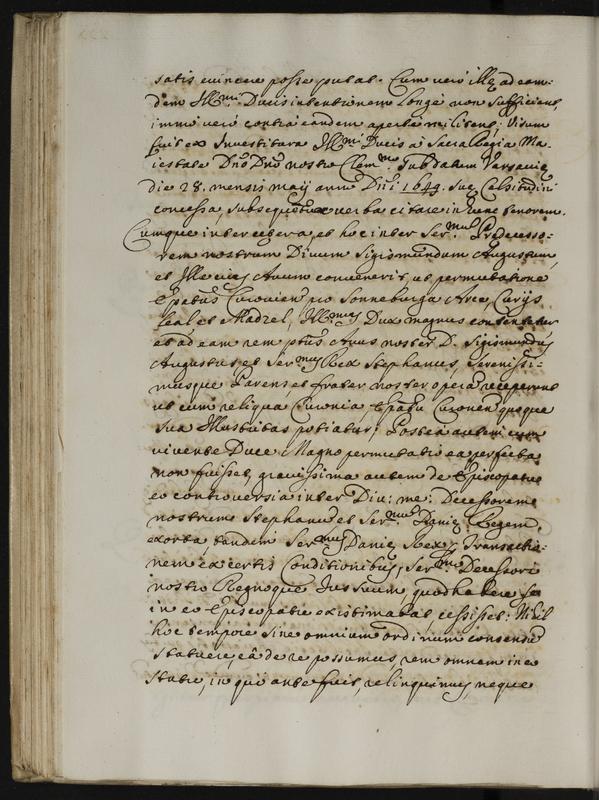 satis evincere posse putat. Cum vero illę ad eam:
dem Ill.mi Ducis intentionem longè non sufficient,
immo vero contra eandem apertè militent; Visum
fuit ex Investitura Ill.mi Ducis à Sacra Regia Ma:
iestate Dno Dno nostro Clem.mo sub datum Varsavię
die 28. mensis maij anno Dni 1649. suę Celsitudini
concessa, subsequentia verba citare in hunc tenorem.
Cumque intercętera, et hoc inter Ser.mum Prędecesso:
rem nostrum Divum Sigismundum Augustum,
et Illę eius Avum convenerit, ut permutatione
Epatus Curonien pro Sonneburga Arce, Curijs
leal et Madzel, Ill.mus Dux magnus contentetur
et ad eam rem ptus Avus noster D. Sigismundus
Augustus et Ser.mus Rex Stephanus, Serenissi:
musque Parens, et frater noster operā receperunt
ut cum reliqua Curonia, Epatu Curonen quoque
sua Illustritas potiatur; Postea autem cum
vivente Duce Magno permutatio ea perfecta
non fuisset, gravissima autem de Episcopatu
eo controversia inter Div: me: Decessorem
nostrum Stephanū et Ser.mum Danię Regem,
exorta, tandem Ser.mus Danię Rex, Transactio:
nem ex certis Conditionibus, Ser.mo Decessori
nostro Regnoque Jus suum, quod habere se
in eo Episcopatu existimabat cessisset: Nihil
hoc tempore sine omnium ordinum consensu
statuere, eâ de re possumus, rem omnem in eo
statu, in quo ante fuit, relinquimus, neque